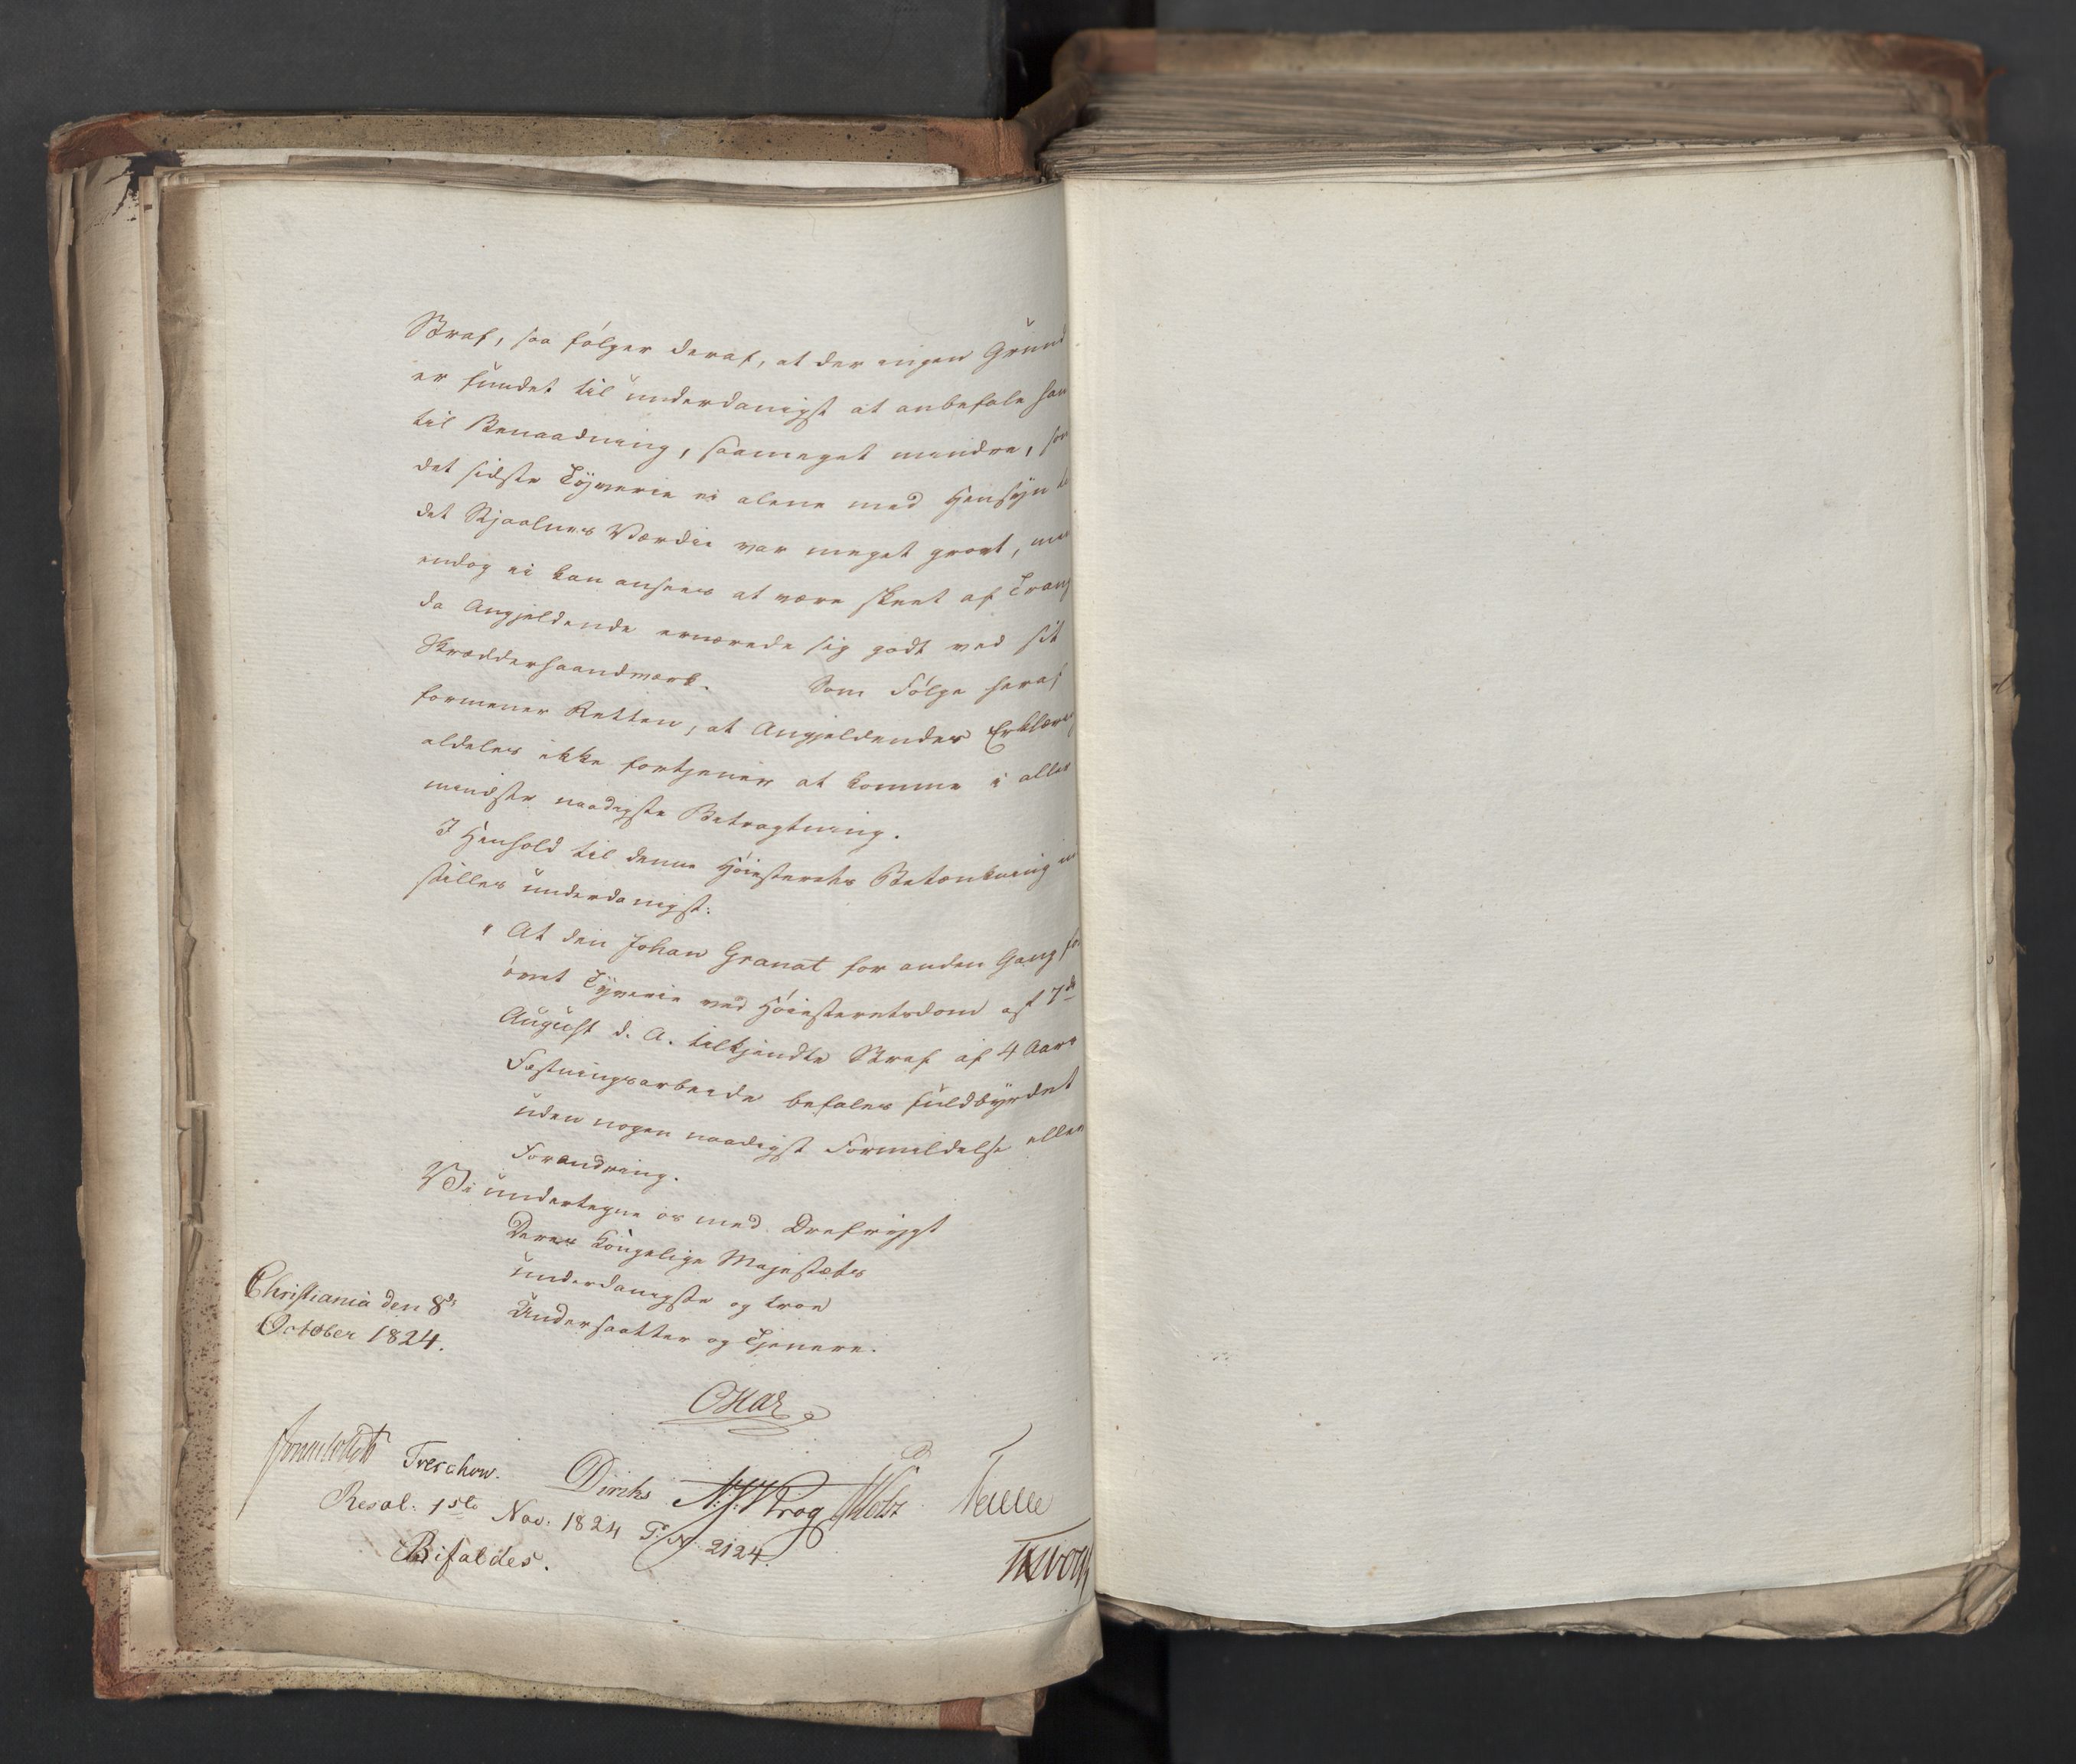 Straf, saa følger deraf, at der ingen Grund
er fundet til underdanigst at anbefale ham
til Benaadning, saameget mindre, som
det sidste Tyverie ei alene med Hensyn til
det Stjaalnes Værdie var meget grovt, men
endog ei kan ansees at være skeet af Trang
da Angjeldende ernærede sig godt ved sit
Skrædderhaandværk. Som Følge heraf
formener Retten, at Angjeldendes Erklæring
aldeles ikke fortjener at komme i aller
mindste naadigste Betragtning.
I Henhold til denne Høiesterets Betænkning ind
stilles underdanigst:
" At den Johan Granat for anden Gang for
øvet Tyverie ved Høiesteretsdom af 7de
August d. A. tilkjendte Straf af 4 Aars
Fæstningsarbeide befales fuldbyrdet
uden nogen naadigst Formildelse eller
Forandring.
Vi undertegne os med Drefrygt
Deres Kongelige Majestæts
underdanigste og troe
Undersaatter og Tjenere.
Christiania den 8de
October 1824.
Oscar
Sommerhielm Treschow. Diriks N:J:Krog Holst
Resol: 1ste Nov: 1824 P: N: 2124.
Bifaldes.